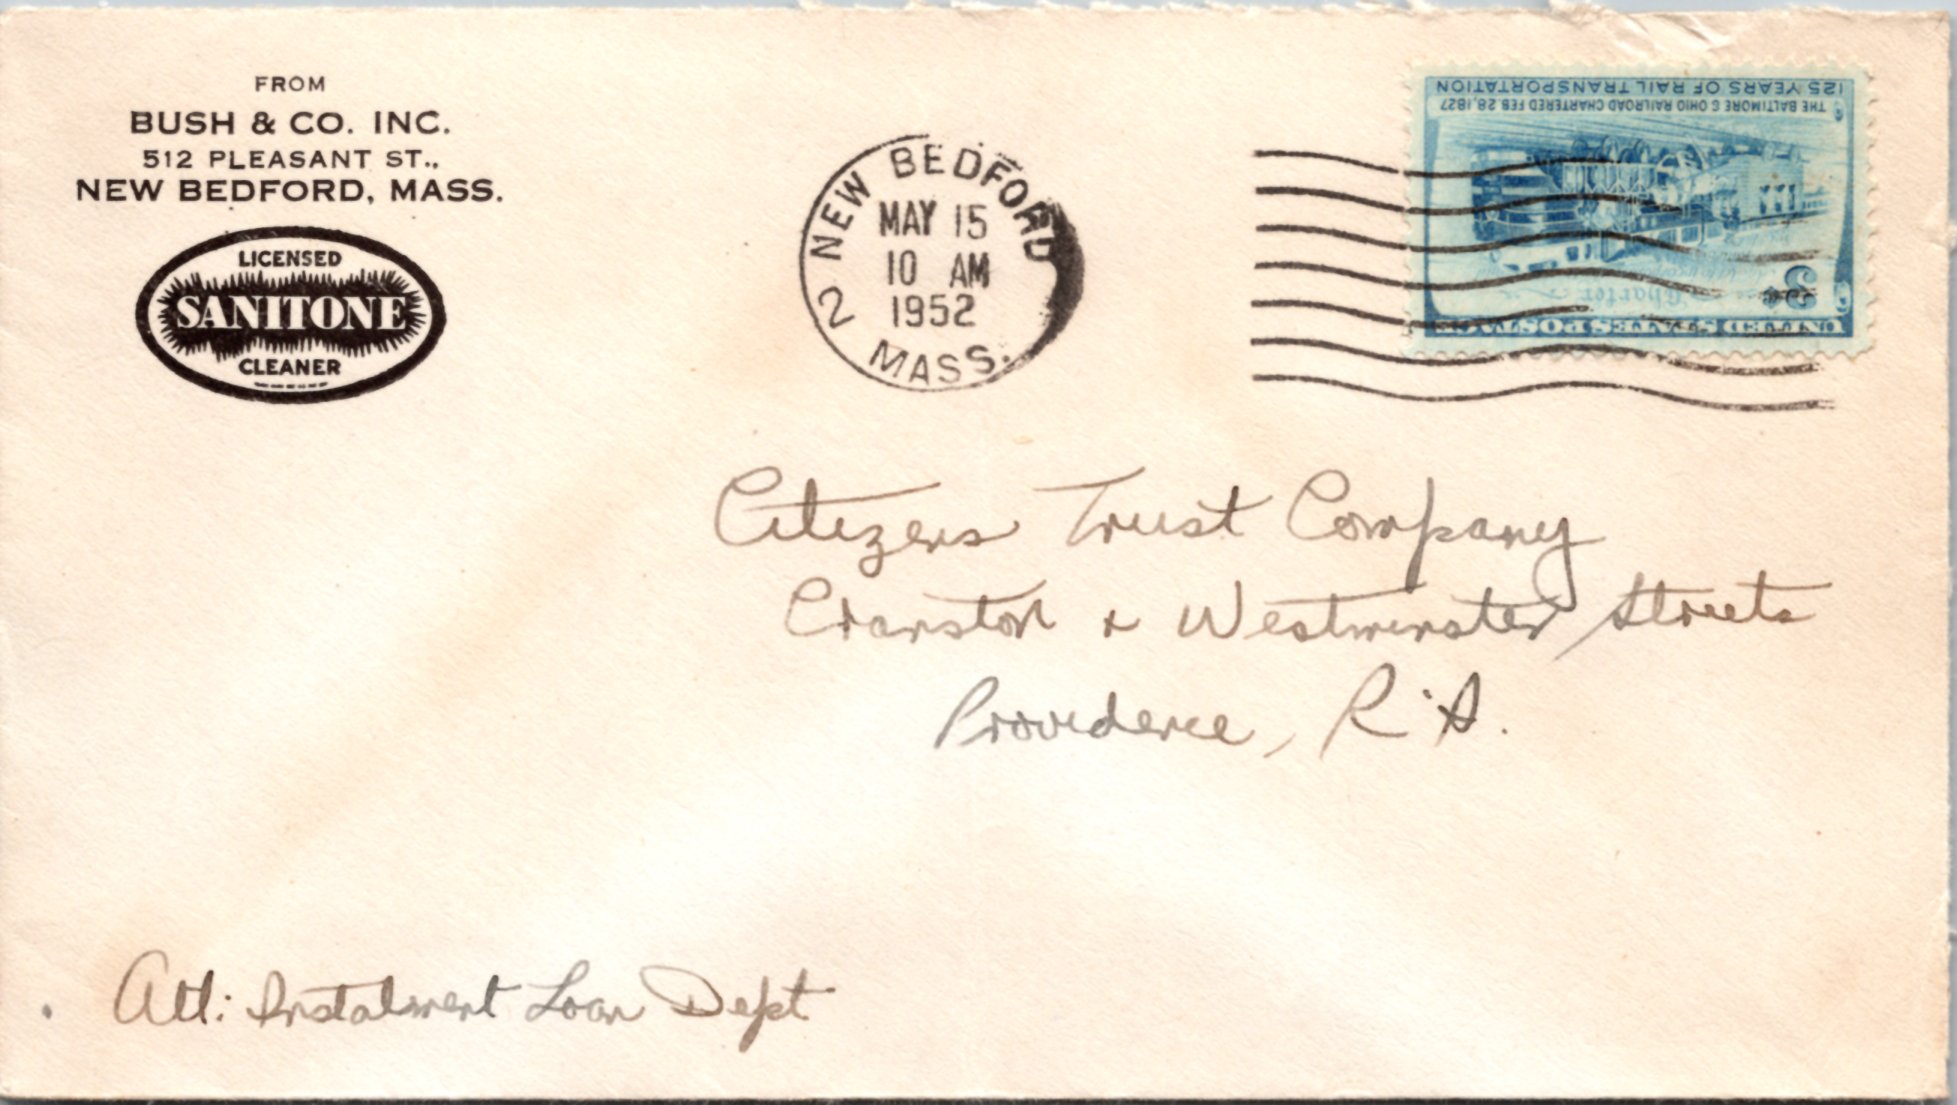 FROM
BUSH & CO. INC.
512 PLEASANT ST.,
NEW BEDFORD, MASS.
LICENSED
SANITONE
CLEANER
NEW BEDFORD
MAY 15
10 AM
1952
2
MASS.
125 YEARS OF RAIL TRANSPORTATION
THE BALTIMORE & OHIO RAILROAD CHARTERED FEB. 28, 1827
Charter
3¢
UNITED STATES POSTAGE
Citizens Trust Company
Cranston & Westminster Streets
Providence, R.I.
Att: Instalment Loan Dept